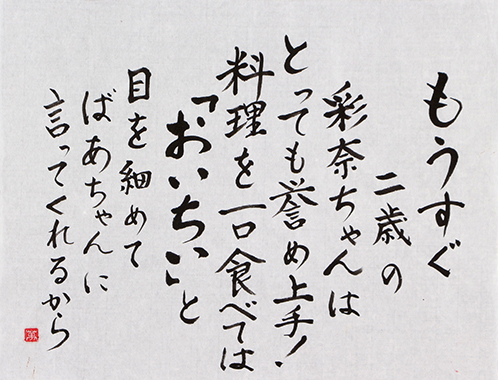 もうすぐ
二歳の
彩奈ちゃんは
とっても誉め上手!
料理を一口食べては
「おいちい」と
目を細めて
ばあちゃんに
言ってくれるから